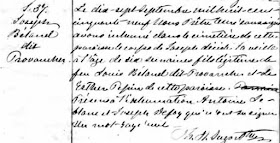 S. 37.
Joseph
Bélanel
dit
Provancher
Le dix-sept Septembre mil huit cent
cinquante-neuf Nous Prêtre soussigné
avons inhumé dans le cimetière de cette
paroisse le corps de Joseph décédé la veille
à l'âge de dix semaines fils légitime de
feu Louis Bélanel dit Provancher et de
Esther Pepin de cette paroisse.
Présens à l'inhumation Antoine Le-
blanc et Joseph qui n'ont su signer
Un mot rayé nul